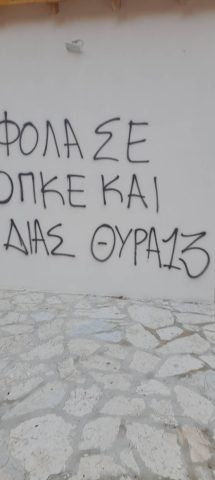 ΦΟΛΑ ΣΕ
ΟΠΚΕ ΚΑΙ
ΔΙΑΣ ΘΥΡΑ 13